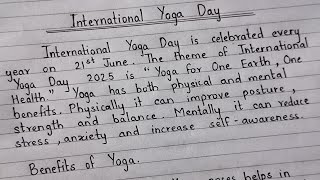 International Yoga Day
International Yoga Day is celebrated every
year on 21st June. The theme of International
Yoga Day 2025 is "Yoga for One Earth, One
Health." Yoga has both physical and mental
benefits. Physically it can improve posture,
strength and balance. Mentally it can reduce
stress, anxiety and increase self-awareness.
Benefits of Yoga.
helps in